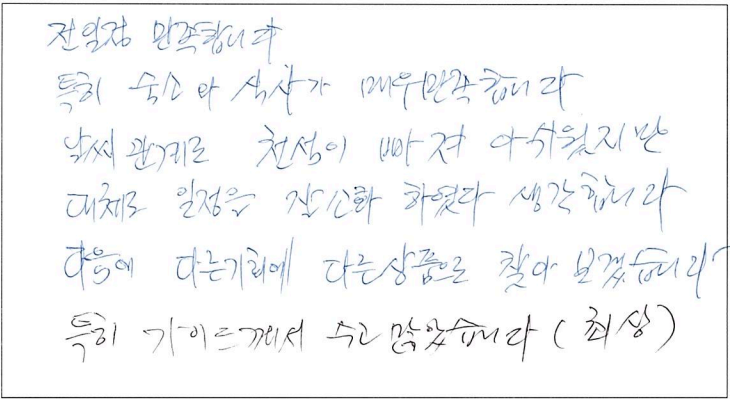 전일정 만족합니다
특히 숙소와 식사가 매우만족합니다
날씨 관계로 천섬이 빠져 아쉬웠지만
대체로 일정을 잘소화 하였다 생각합니다
다음에 다른기회에 다른상품으로 찾아 보겠습니다
특히 가이드께서 수고 많았습니다 (최상)